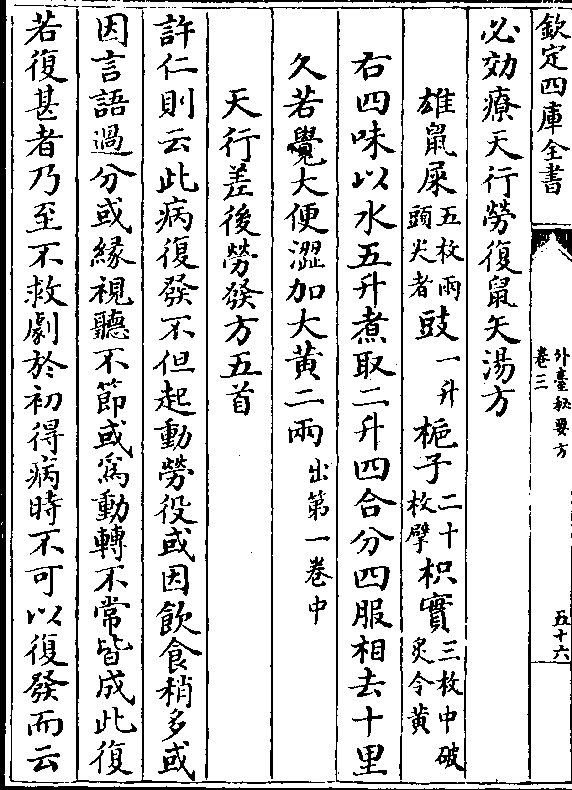 欽定四庫全書
外臺秘要方
卷三
五十六
必効療天行勞復鼠矢湯方
雄鼠屎五枚兩頭尖者豉一升梔子二十枚擘枳實三枚中破炙令黄
右四味以水五升煮取二升四合分四服相去十里
久若覺大便澀加大黄二兩出第一卷中
天行差後勞發方五首
許仁則云此病復發不但起動勞役或因飲食稍多或
因言語過分或緣視聽不節或爲動轉不常皆成此復
若復甚者乃至不救劇於初得病時不可以復發而云